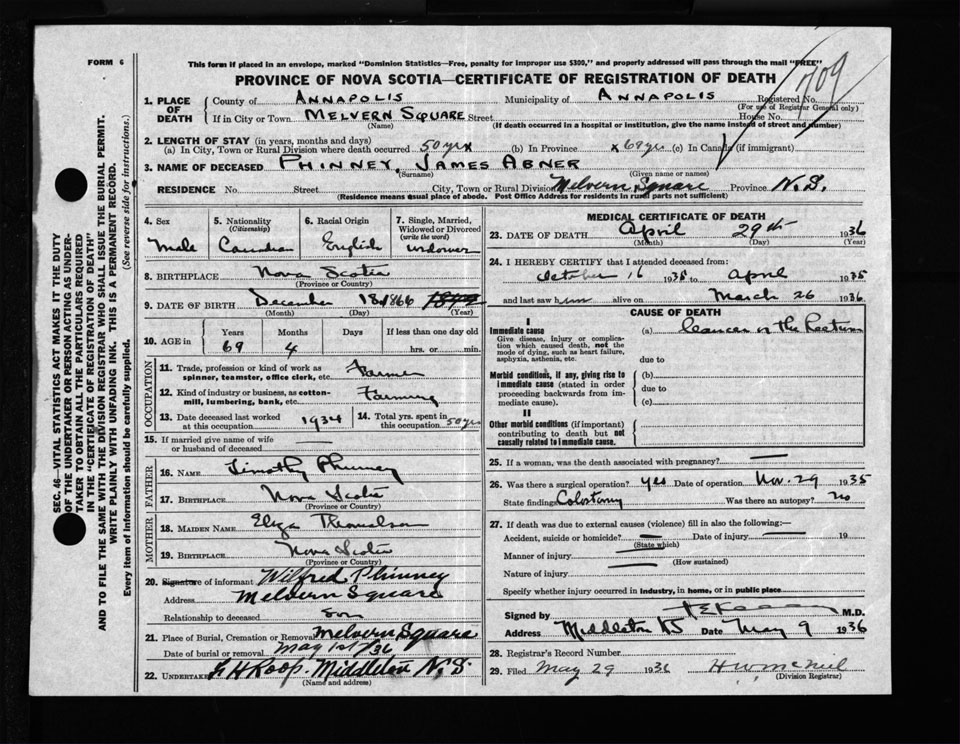 FORM 6
This form if placed in an envelope, marked "Dominion Statistics—Free, penalty for improper use $300," and properly addressed will pass through the mail "FREE"
PROVINCE OF NOVA SCOTIA—CERTIFICATE OF REGISTRATION OF DEATH
709
1. PLACE OF DEATH County of ANNAPOLIS Municipality of ANNAPOLIS Registered No.
(For use of Registrar General only)
If in City or Town MELVERN SQUARE Street House No.
(Name) (If death occurred in a hospital or institution, give the name instead of street and number)
2. LENGTH OF STAY (in years, months and days)
(a) In City, Town or Rural Division where death occurred 50 yrs x (b) In Province x 69 yrs (c) In Canada (if immigrant)
3. NAME OF DECEASED PHINNEY, JAMES ABNER
(Surname) (Given name or names)
RESIDENCE No. Street City, Town or Rural Division Melvern Square Province N.S.
(Residence means usual place of abode. Post Office Address for residents in rural parts not sufficient)
4. Sex Male
5. Nationality (Citizenship) Canadian
6. Racial Origin English
7. Single, Married, Widowed or Divorced (write the word) Widower
8. BIRTHPLACE Nova Scotia
(Province or Country)
9. DATE OF BIRTH December 18 1866
(Month) (Day) (Year)
10. AGE in Years Months Days If less than one day old
69 4 hrs. or min.
OCCUPATION
11. Trade, profession or kind of work as spinner, teamster, office clerk, etc. Farmer
12. Kind of industry or business, as cotton-mill, lumbering, bank, etc. Farming
13. Date deceased last worked at this occupation 1934
14. Total yrs. spent in this occupation 50 yrs
15. If married give name of wife or husband of deceased —
FATHER
16. NAME Timothy Phinney
17. BIRTHPLACE Nova Scotia
(Province or Country)
MOTHER
18. MAIDEN NAME Eliza
19. BIRTHPLACE Nova Scotia
(Province or Country)
20. Signature of informant Wilfred Phinney
Address Melvern Square
Relationship to deceased son
21. Place of Burial, Cremation or Removal Melvern Square
Date of burial or removal May 1st/36
22. UNDERTAKER G H Roop. Middleton N.S.
(Name and address)
MEDICAL CERTIFICATE OF DEATH
23. DATE OF DEATH April 29th 1936
(Month) (Day) (Year)
24. I HEREBY CERTIFY that I attended deceased from:
October 16 1935 to April 1935
and last saw him alive on March 26 1936
CAUSE OF DEATH
I
Immediate cause (a) Cancer of the Rectum
Give disease, injury or complication which caused death, not the mode of dying, such as heart failure, asphyxia, asthenia, etc.
due to
Morbid conditions, if any, giving rise to immediate cause (stated in order proceeding backwards from immediate cause).
(b)
due to
(c)
II
Other morbid conditions (if important) contributing to death but not causally related to immediate cause.
25. If a woman, was the death associated with pregnancy? —
26. Was there a surgical operation? yes Date of operation Nov. 29 1935
State findings Colostomy Was there an autopsy? no
27. If death was due to external causes (violence) fill in also the following:—
Accident, suicide or homicide? — Date of injury — 19
(State which)
Manner of injury —
(How sustained)
Nature of injury —
Specify whether injury occurred in industry, in home, or in public place
Signed by M.D.
Address Middleton NS Date May 9 1936
28. Registrar's Record Number
29. Filed May 29 1936 H W McNeil
(Division Registrar)
SEC. 46—VITAL STATISTICS ACT MAKES IT THE DUTY
OF THE UNDERTAKER OR PERSON ACTING AS UNDER-
TAKER TO OBTAIN ALL THE PARTICULARS REQUIRED
IN THE "CERTIFICATE OF REGISTRATION OF DEATH"
AND TO FILE THE SAME WITH THE DIVISION REGISTRAR WHO SHALL ISSUE THE BURIAL PERMIT.
WRITE PLAINLY WITH UNFADING INK. THIS IS A PERMANENT RECORD.
Every item of Information should be carefully supplied. (See reverse side for instructions.)